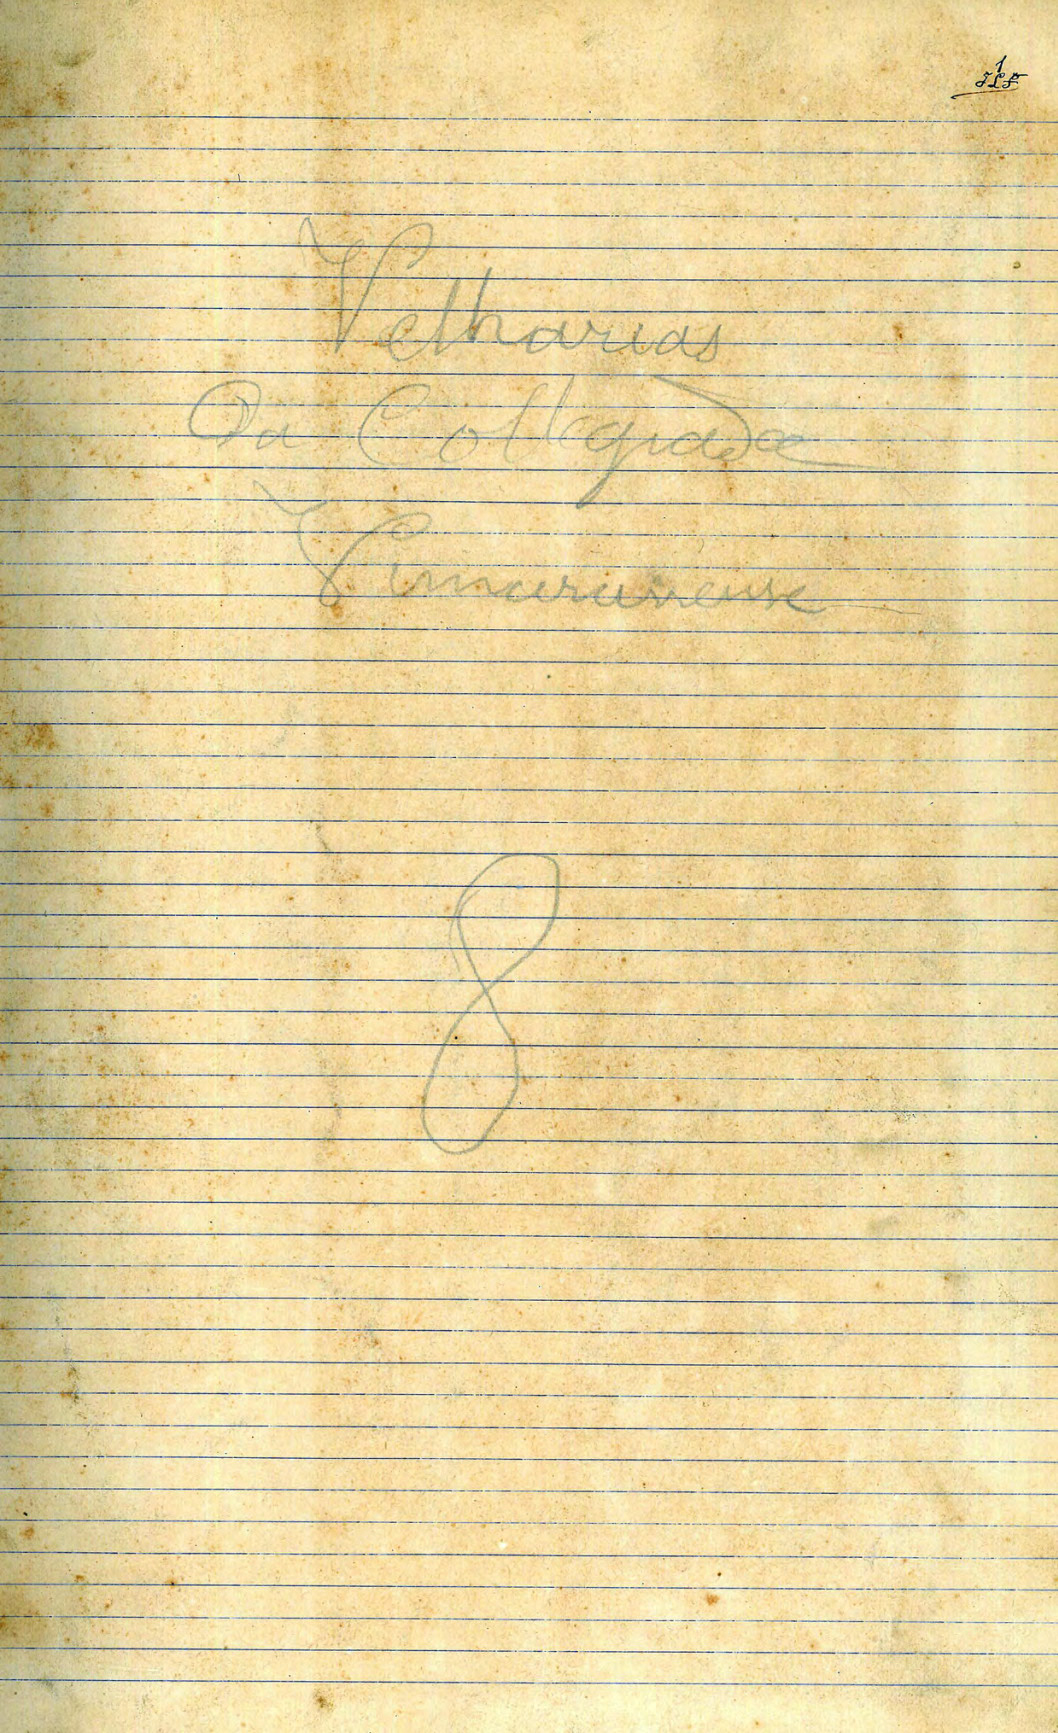 1
JLF
Velharias
Da Collegiada
Vimaranense
8